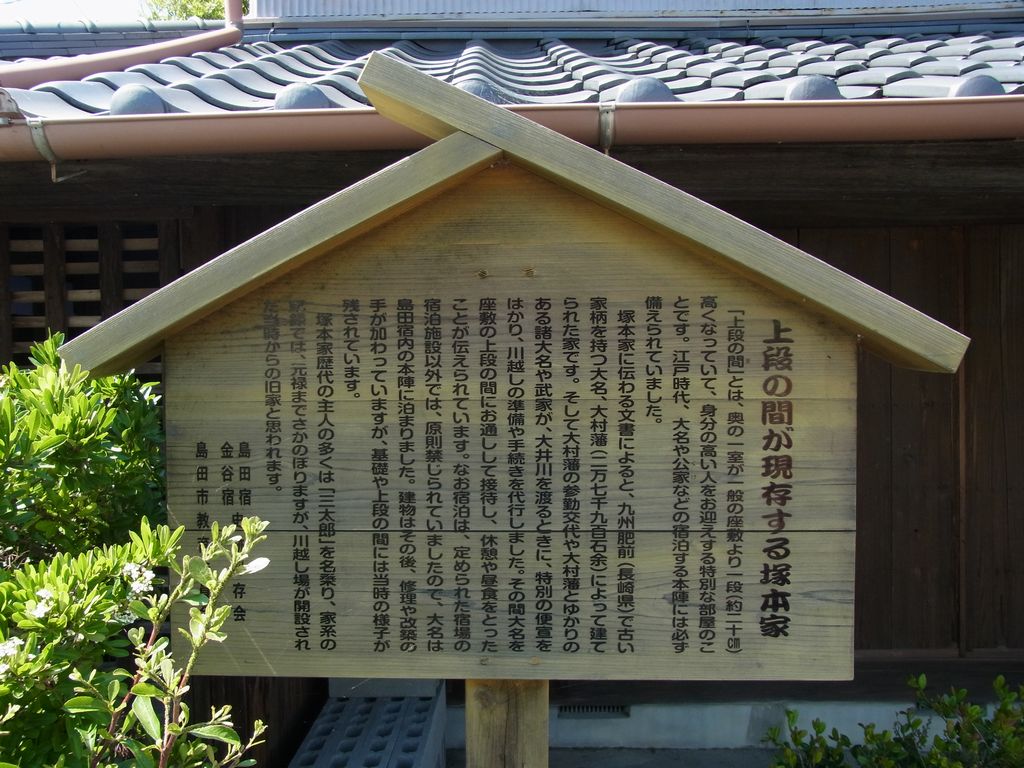 上段の間が現存する塚本家
「上段の間」とは、奥の一室が一般の座敷より一段(約二十㎝)
高くなっていて、身分の高い人をお迎えする特別な部屋のこ
とです。江戸時代、大名や公家などの宿泊する本陣には必ず
備えられていました。
塚本家に伝わる文書によると、九州肥前(長崎県)で古い
家柄を持つ大名、大村藩(二万七千九百石余)によって建て
られた家です。そして大村藩の参勤交代や大村藩とゆかりの
ある諸大名や武家が、大井川を渡るときに、特別の便宜を
はかり、川越しの準備や手続きを代行しました。その間大名を
座敷の上段の間にお通しして接待し、休憩や昼食をとった
ことが伝えられています。なお宿泊は、定められた宿場の
宿泊施設以外では、原則禁じられていましたので、大名は
島田宿内の本陣に泊まりました。建物はその後、修理や改築の
手が加わっていますが、基礎や上段の間には当時の様子が
残されています。
塚本家歴代の主人の多くは「三太郎」を名乗り、家系の
記録では、元禄までさかのぼりますが、川越し場が開設され
た当時からの旧家と思われます。
島田宿
金谷宿史 存会
島田市教